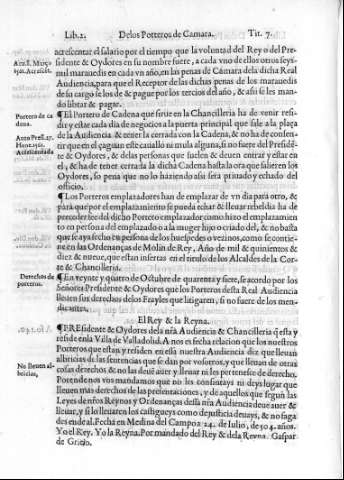 Lib.2. De los Porteros de Camara. Tit. 7.
acrescentar el salario por el tiempo que la voluntad del Rey o del Pre-
sidente & Oydores en su nombre fuere, a cada vno de ellos otros seys
mil marauedis en cada vn año, en las penas de Cámara dela dicha Real
Audiencia, para que el Receptor de las dichas penas de los marauedis
de su cargo se los de & pague por los tercios del año, & assi se les man-
do librar & pagar.
Portero de ca
dena.
¶El portero de Cadena que sirue en la Chancilleria ha de venir resi-
dir y estar cada dia de negocio a la puerta principal que sale a la plaça
de la Audiencia & tener la cerrada con la Cadena, & no ha de consen-
tir que en el çaguan este cauallo ni mula alguna, si no fuere del Preside-
te & Oydores, & de las personas que suelen & deuen entrar y estar en
el, & ha de tener cerrada la dicha Cadena hasta la ora que salieren los
Oydores, so pena que no lo haziendo assi sera priuado y echado del
officio.
¶Los Porteros emplazadores han de emplazar de vn dia para otro, &
para que por el emplazamiento se pueda echar & lleuar rebeldia ha de
preceder fee del dicho Portero emplazador como hizo el emplazamien
to en persona del emplazado o a la muger hijo o criado del, & no basta
que se aya fecho en persona de los huespedes o vezinos, como se contie-
ne en las Ordenanças de Molin de Rey, Año de mil & quinientos &
diez & nueue, que estan insertas en el titulo de los Alcaldes de la Cor-
te & Chancilleria.
Derechos de
porteros.
¶En veynte y quatro de Octubre de quarenta y siete, se acordo por los
Señores Presidente & Oydores que los Porteros desta Real Audiencia
lleuen sus derechos delos Frayles que litigaren, si no fuere de los men-
dicantes.
El Rey & la Reyna.
¶PREsidente & Oydores dela nra Audiencia & Chancilleria q esta y
reside enla Villa de Valladolid. A nos es fecha relacion que los nuestros
Porteros que estan y residen en essa nuestra Audiencia diz que lleuan
No lleuen al-
bricias,
albricias de las sentencias que se dan por vosotros, y que lleuan de otras
cosas derechos & no las deué auer y lleuar ni les pertenesce de derecho.
Porende nos vos mandamos que no les consintays ni deys lugar que
lleuen mas derechos de las presentaciones, y de aquellos que segun las
Leyes de nros Reynos y Ordenanças dessa nra Audiencia deue auer &
lleuar, y si lo lleuaren los castigueys como de justicia deuays, & no faga
des ende al. Fecha en Medina del Campo a 24. de Iulio, de 504. años.
Yo el Rey. Yo la Reyna. Por mandado del Rey & dela Reyna. Gaspar
de Grizio.